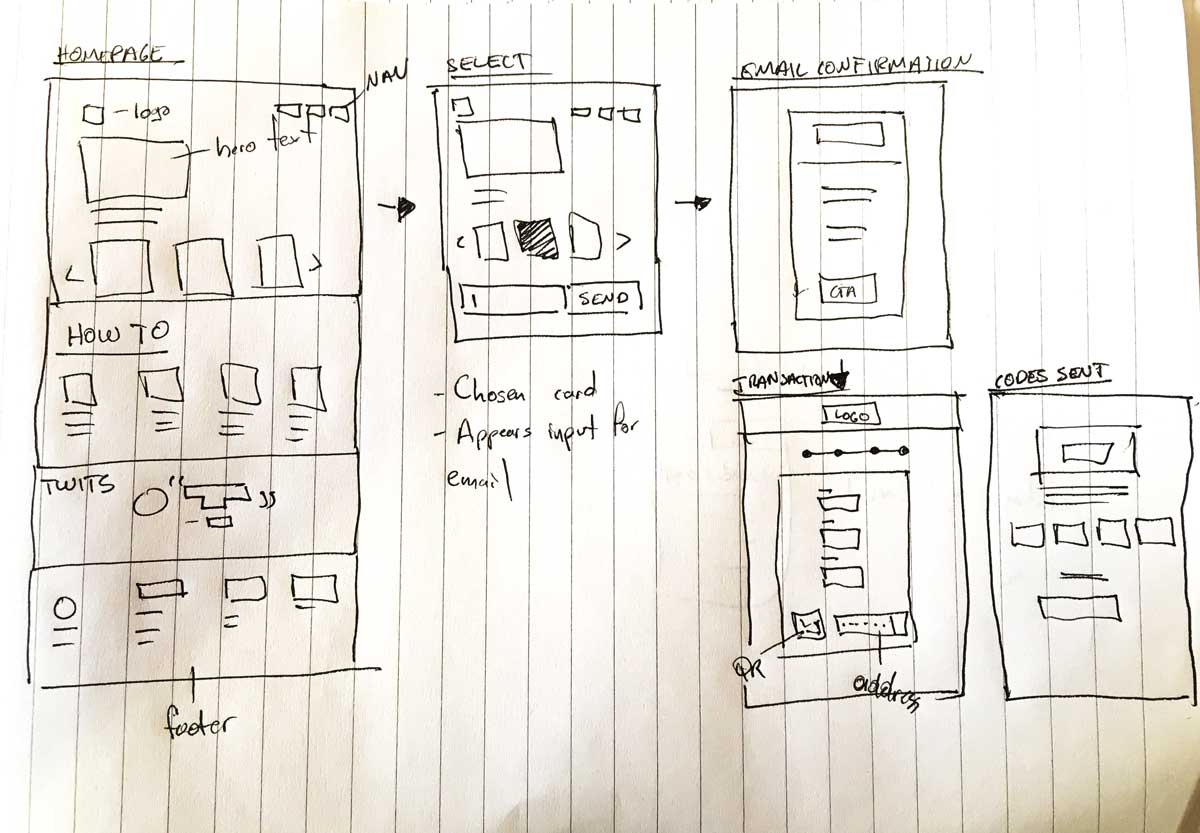 HOMEPAGE
NAV
logo
hero text
HOW TO
TWITS
footer
SELECT
SEND
- Chosen card
- Appears input for
email
EMAIL CONFIRMATION
CTA
TRANSACTION
LOGO
QR
address
CODES SENT